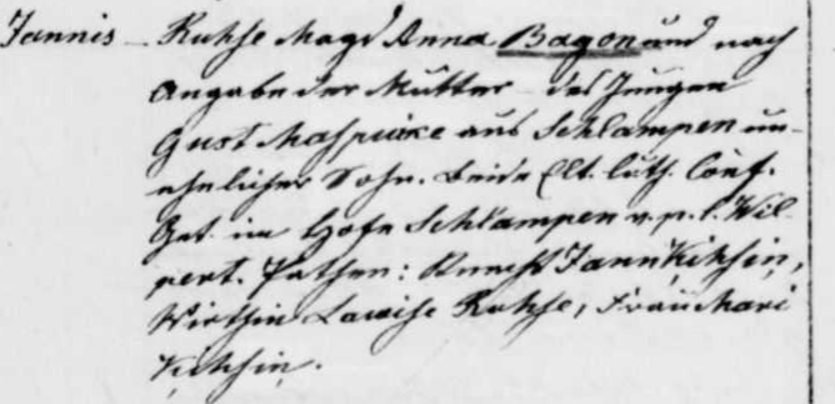 Jannis – Ruhse Magd Anna Bagon und nach
Angabe der Mutter des Jungen
Gust aus Schlampen un-
ehelicher Sohn. Beide Elt. luth. Conf.
Get. im Hofe Schlampen v. p. l. Wil-
pert. Pathen: Knecht Jann Ķikhsiņ,
Wirthin Lawise Ruhse, Frau Mari
Ķikhsiņ.